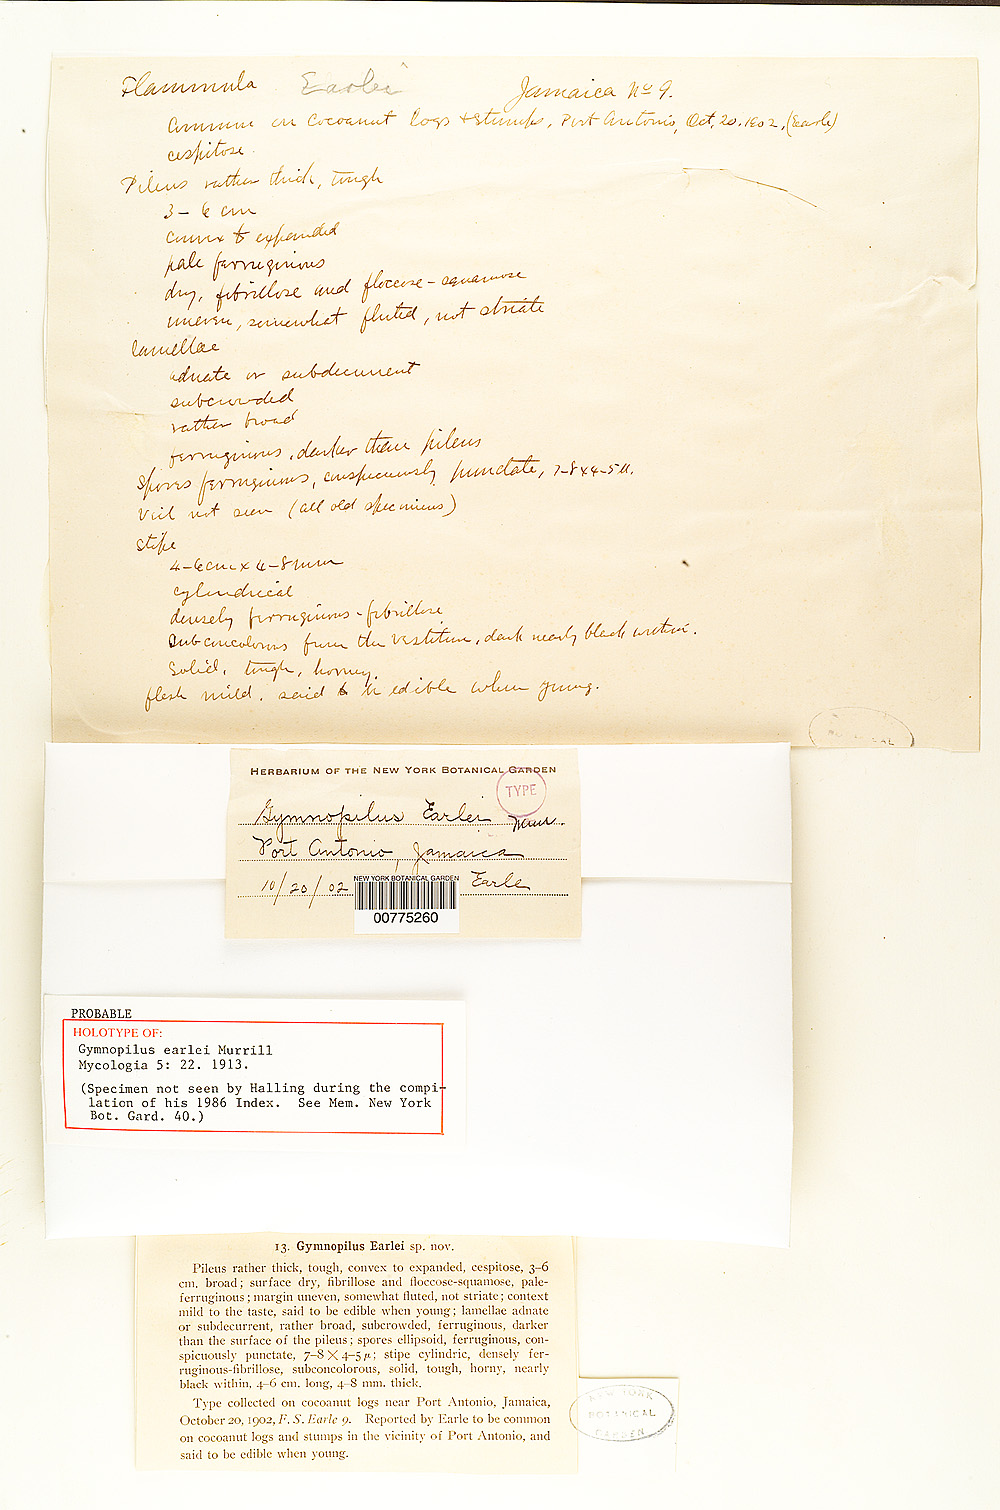 Flammula Earlei Jamaica No 9.
Common on Cocoanut logs & stumps, Port Antonio, Oct. 20. 1902, (Earle)
cespitose.
Pileus rather thick, tough
3 – 6 cm
convex to expanded
pale ferruginous
dry, fibrillose and floccose-squamose
uneven, somewhat fluted, not striate
lamellae
adnate or subdecurrent
subcrowded
rather broad
ferruginous, darker than pileus
Spores ferruginous, conspicuously punctate, 7–8 x 4–5 µ.
Veil not seen (all old specimens)
Stipe
4–6 cm x 4–8 mm
cylindrical
densely ferruginous-fibrillose
Subconcolorous from the vestiture, dark nearly black within.
Solid, tough, horney.
flesh mild. said to be edible when young.
HERBARIUM OF THE NEW YORK BOTANICAL GARDEN
TYPE
Gymnopilus Earlei Murr.
Port Antonio, Jamaica
10/20/02 Earle
NEW YORK BOTANICAL GARDEN
00775260
PROBABLE
HOLOTYPE OF:
Gymnopilus earlei Murrill
Mycologia 5: 22. 1913.
(Specimen not seen by Halling during the compi-
lation of his 1986 Index. See Mem. New York
Bot. Gard. 40.)
13. Gymnopilus Earlei sp. nov.
Pileus rather thick, tough, convex to expanded, cespitose, 3–6
cm. broad; surface dry, fibrillose and floccose-squamose, pale-
ferruginous; margin uneven, somewhat fluted, not striate; context
mild to the taste, said to be edible when young; lamellae adnate
or subdecurrent, rather broad, subcrowded, ferruginous, darker
than the surface of the pileus; spores ellipsoid, ferruginous, con-
spicuously punctate, 7–8 × 4–5 µ; stipe cylindric, densely fer-
ruginous-fibrillose, subconcolorous, solid, tough, horny, nearly
black within, 4–6 cm. long, 4–8 mm. thick.
Type collected on cocoanut logs near Port Antonio, Jamaica,
October 20, 1902, F. S. Earle 9. Reported by Earle to be common
on cocoanut logs and stumps in the vicinity of Port Antonio, and
said to be edible when young.
NEW YORK
BOTANICAL
GARDEN